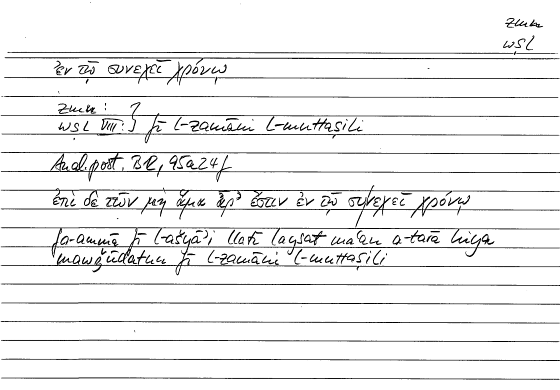 zmn
wṣl
ἐν τῷ συνεχεῖ χρόνῳ
zmn :
wṣl VIII : } fī l-zamāni l-muttaṣili
Anal. post. B 12, 95a24f
ἐπὶ δὲ τῶν μὴ ἅμα ἆρ’ ἔστιν ἐν τῷ συνεχεῖ χρόνῳ
fa-ammā fī l-ašyāʾi llatī laysat maʿan a-tarā hiya
mawǧūdatun fī l-zamāni l-muttaṣili